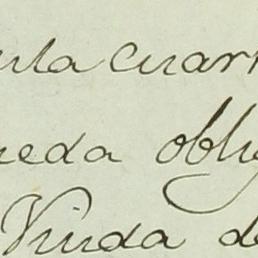 ula cuar
ueda oblig
Viuda de